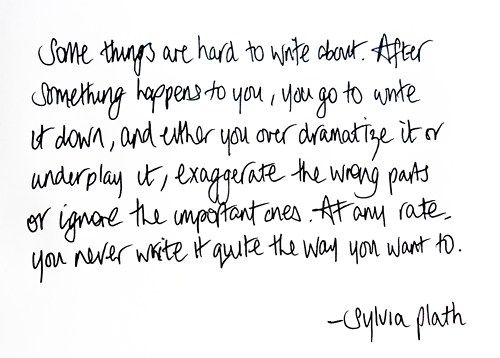 Some things are hard to write about. After
something happens to you, you go to write
it down, and either you over dramatize it or
underplay it, exaggerate the wrong parts
or ignore the important ones. At any rate,
you never write it quite the way you want to.
-Sylvia plath